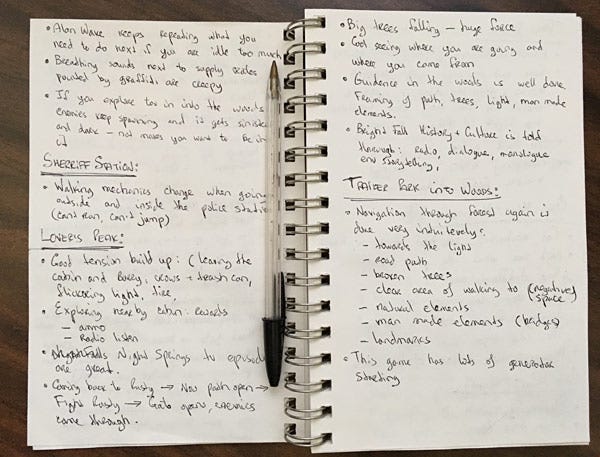 • Alan Wake keeps repeating what you
need to do next if you are idle too much
• Breathing sounds next to supply crates
pointed by graffiti are creepy
• If you explore too in into the woods
enemies keep spawning and it gets sinister
and dark – not makes you want to be in
it
SHERRIFF STATION:
• Walking mechanics change when going
outside and inside the police station
(can't run, can't jump)
LOVER'S PEAK:
• Good tension build up: (leaving the
cabin and Rusty, crows + trash can,
flickering light, fire,
• Exploring near by cabin: rewards
– ammo
– Radio listen
• Night Springs tv episodes
are great.
• Coming back to Rusty → Now path open →
Fight Rusty → Gate opens, enemies
came through.
• Big trees falling – huge force
• Cool seeing where you are going and
where you came from
• Guidence in the woods is well done.
Framing of path, trees, light, man made
elements.
• Bright Fall History + Culture is told
through: radio, dialogue, monologue
env storytelling,
TRAILER PARK INTO WOODS:
• Navigation through forest again is
done very induitevely:
– towards the light
– road path
– broken trees
– clear area of walking to (negative)
(space)
– natural elements
– man made elements (bridges)
– landmarks
• This game has lots of generator
starting